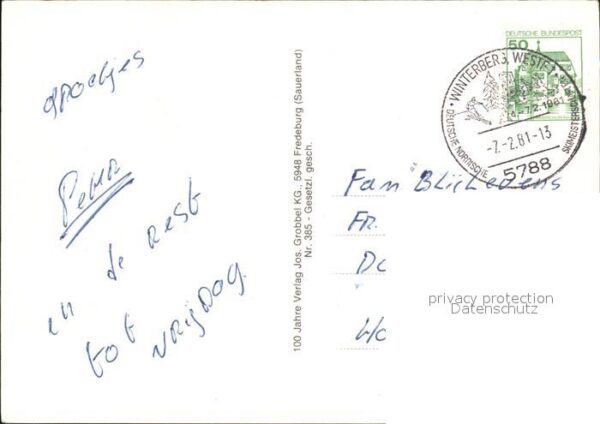 Groetjes
Petra
en de rest
tot vrijdag
100 Jahre Verlag Jos. Grobbel KG., 5948 Fredeburg (Sauerland)
Nr. 385 - Gesetzl. gesch.
DEUTSCHE BUNDESPOST
50
WINTERBERG, WESTF
7.2.1981
-7.-2.81-13
DEUTSCHE NORDISCHE SKIMEISTERSCH
5788
Fam
FR.
privacy protection
Datenschutz